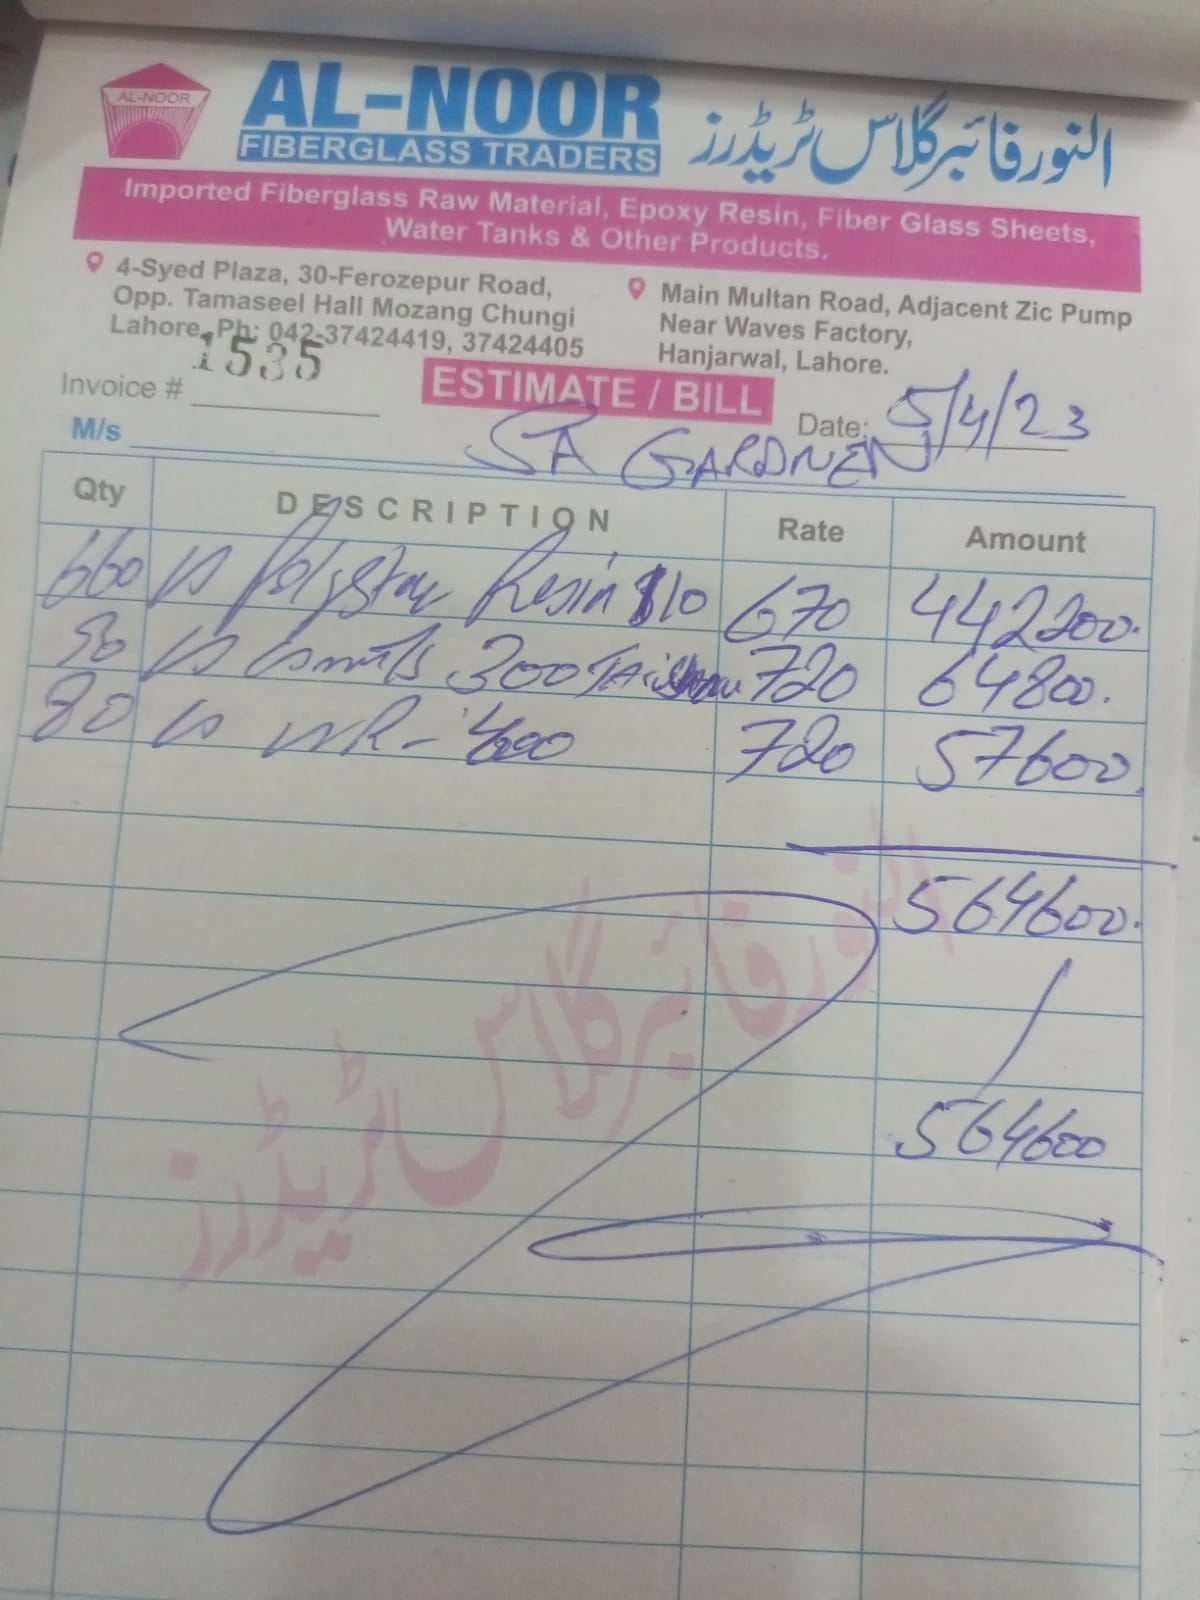 AL-NOOR
AL-NOOR
FIBERGLASS TRADERS
النور فائبر گلاس ٹریڈرز
Imported Fiberglass Raw Material, Epoxy Resin, Fiber Glass Sheets,
Water Tanks & Other Products.
4-Syed Plaza, 30-Ferozepur Road,
Opp. Tamaseel Hall Mozang Chungi
Lahore, Ph: 042-37424419, 37424405
Main Multan Road, Adjacent Zic Pump
Near Waves Factory,
Hanjarwal, Lahore.
Invoice # 1535
ESTIMATE / BILL
Date: 5/4/23
M/s SA GARDNEN
Qty DESCRIPTION Rate Amount
660 Resin 670 442200.
90 300 720 64800.
80 WR - 720 57600.
564600.
564600
النور فائبر گلاس ٹریڈرز